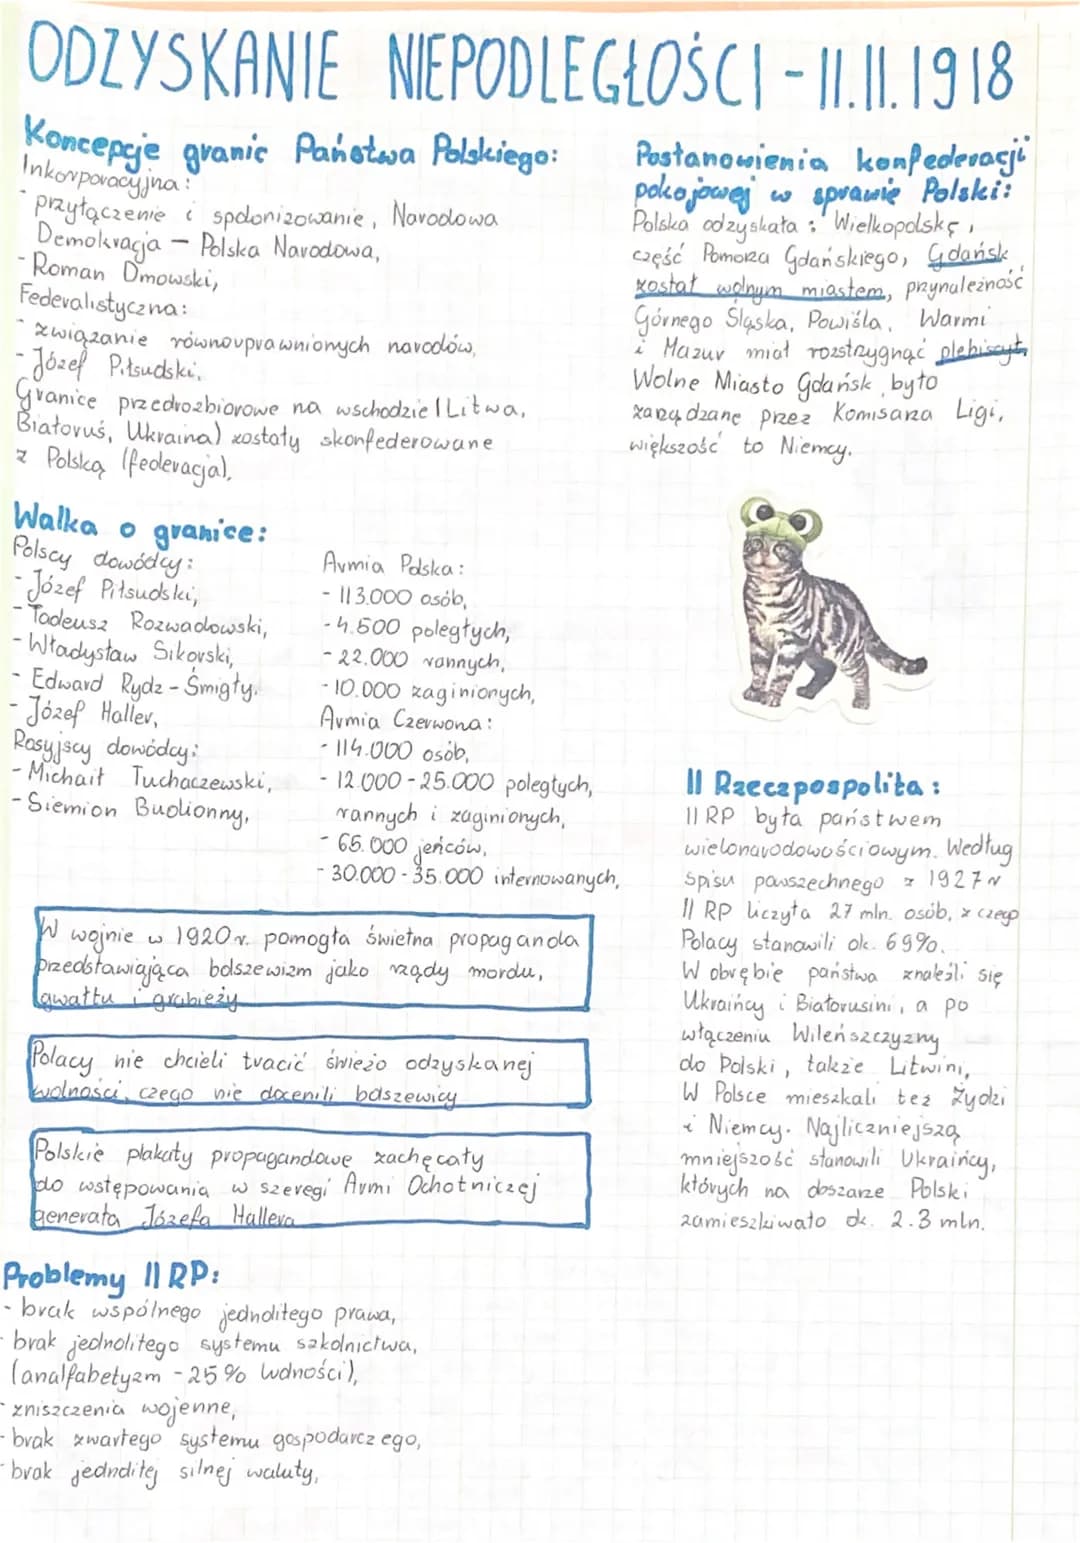 ODZYSKANIE NIEPODLEGŁOŚCI - 11.11.1918
Koncepcje granic Państwa Polskiego:
Inkorporacyjna:
- przyłączenie i spolonizowanie, Narodowa
Demokracja - Polska Narodowa,
- Roman Dmowski,
Federalistyczna:
- związanie równouprawnionych narodów,
- Józef Piłsudski,
Granice przedrozbiorowe na wschodzie (Litwa,
Białoruś, Ukraina) zostały skonfederowane
z Polską (federacja),
Postanowienia konfederacji
pokojowej w sprawie Polski:
Polska odzyskała: Wielkopolskę,
część Pomorza Gdańskiego, Gdańsk
został wolnym miastem, przynależność
Górnego Śląska, Powiśla, Warmi
i Mazur miał rozstrzygnąć plebiscyt,
Wolne Miasto Gdańsk było
zarządzane przez Komisarza Ligi,
większość to Niemcy.
Walka o granice:
Polscy dowódcy:
- Józef Piłsudski,
- Tadeusz Rozwadowski,
- Władysław Sikorski,
- Edward Rydz-Śmigły,
- Józef Haller,
Rosyjscy dowódcy:
- Michaił Tuchaczewski,
- Siemion Budionny,
Armia Polska:
- 113.000 osób,
- 4.500 poległych,
- 22.000 rannych,
- 10.000 zaginionych,
Armia Czerwona:
- 114.000 osób,
- 12.000-25.000 poległych,
rannych i zaginionych,
- 65.000 jeńców,
- 30.000-35.000 internowanych,
W wojnie w 1920 r. pomogła świetna propaganda
przedstawiająca bolszewizm jako rządy mordu,
gwałtu i grabieży
Polacy nie chcieli tracić świeżo odzyskanej
wolności, czego nie docenili bolszewicy
Polskie plakaty propagandowe zachęcały
do wstępowania w szeregi Armi Ochotniczej
generała Józefa Hallera
Problemy II RP:
- brak wspólnego jednolitego prawa,
- brak jednolitego systemu szkolnictwa,
(analfabetyzm - 25% ludności),
- zniszczenia wojenne,
- brak zwartego systemu gospodarczego,
- brak jednolitej silnej waluty,
II Rzeczpospolita:
II RP była państwem
wielonarodowościowym. Według
spisu powszechnego z 1927 r
II RP liczyła 27 mln. osób, z czego
Polacy stanowili ok. 69%.
W obrębie państwa znaleźli się
Ukraińcy i Białorusini, a po
włączeniu Wileńszczyzny
do Polski, także Litwini,
W Polsce mieszkali też Żydzi
i Niemcy. Najliczniejszą
mniejszość stanowili Ukraińcy,
których na obszarze Polski
zamieszkiwało ok. 2.3 mln.